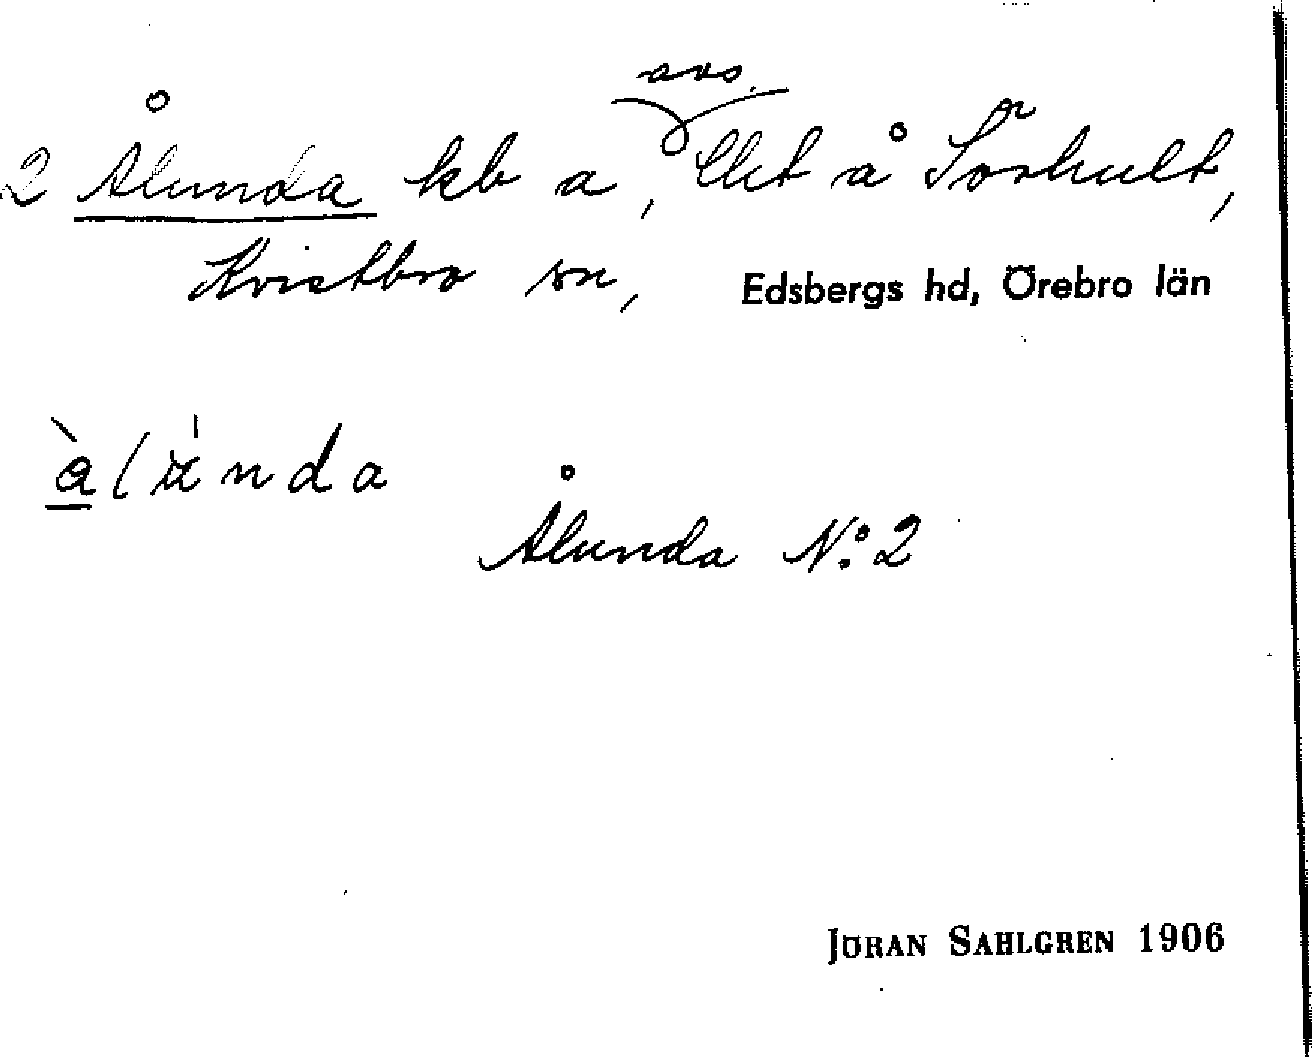 avs.
2 Ålunda kb a, Ekt å Sörhult,
Kvistbro sn, Edsbergs hd, Örebro län
Ålunda No: 2
JÖRAN SAHLGREN 1906